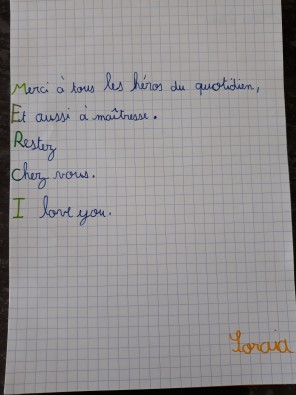 Merci à tous les héros du quotidien,
Et aussi à maîtresse.
Restez
Chez vous.
I love you.
Soraia